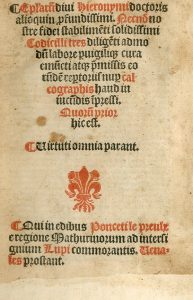 ¶Epłarũ diui Hieronymi doctoris
alioquin, pfundissimi. Necnõ no
stre fidei stabilimẽti solidissimi
Codicilli tres diligẽti admo
dũ labore puigiliq; cura
emũcti atq; pmissis eo
rũdẽ reptorijs nup cal
cographis haud in
iucũdis ipressi.
Quorũ prior
hic est.
¶Virtuti omnia parant.
¶Qui in edibus Ponceti le preulx
e regione Mathurinorum ad intersi
gnium Lupi commorantis. Vena
les prostant.